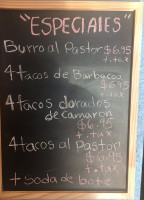 "ESPECIALES"
Burro al Pastor $6.95
+.tax
4 tacos de Barbacoa
+.tax
4 tacos dorados
de camaron
$6.95
+.tax
4 tacos al Pastor
$6.95
+.tax
+ Soda de bote